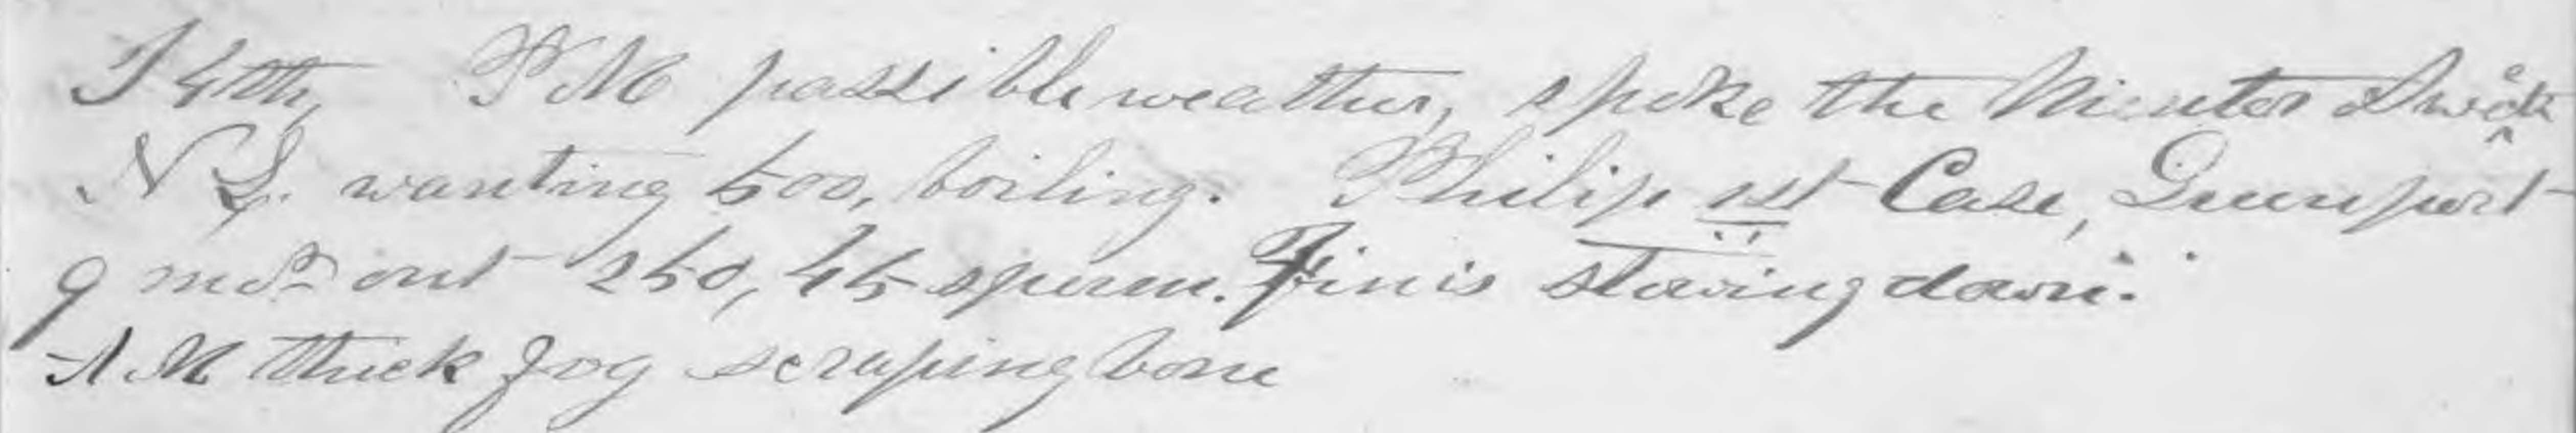 14th, P M passible weather, spoke the Mentor
N L. wanting 500, boiling. Philip 1st Case, Greenport
9 mos out 250, 45 sperm. Finis stowing down.
A M thick fog scraping bone